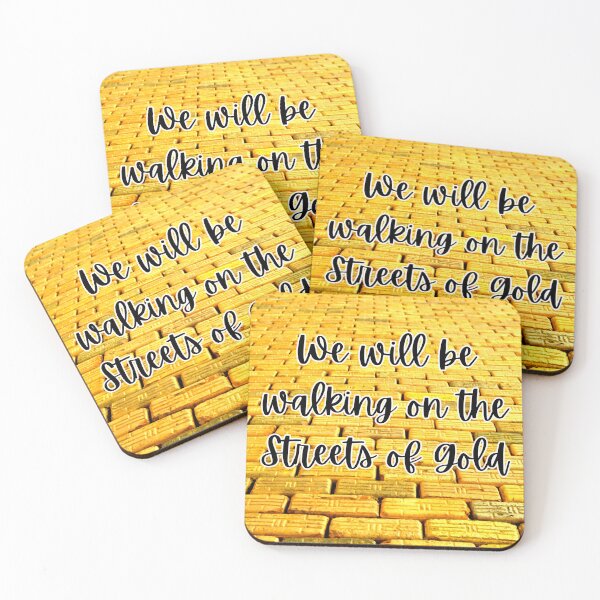 We will be
walking on
We will be
walking on the
Streets of Gold
We will be
walking on the
Streets of
We will be
walking on the
Streets of Gold